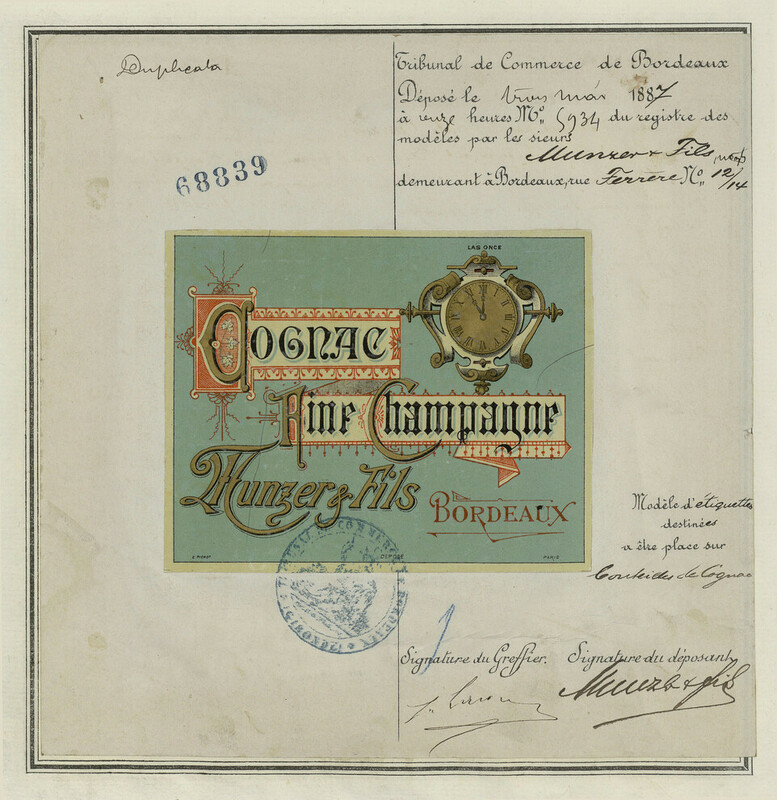 Duplicata
Tribunal de Commerce de Bordeaux
Déposé le trois mai 1887
à onze heures Mº 5934 du registre des
modèles par les sieurs
Munzer & Fils
demeurant à Bordeaux, rue Ferrère Nº 12/14
68839
LAS ONCE
COGNAC
Fine Champagne
Munzer & Fils
BORDEAUX
DÉPOSÉ
PARIS
Modèle d'étiquettes
destinées
a être place sur
de Cognac
TRIBUNAL DE COMMERCE DE BORDEAUX
Signature du Greffier. Signature du déposant
Munzer & fils